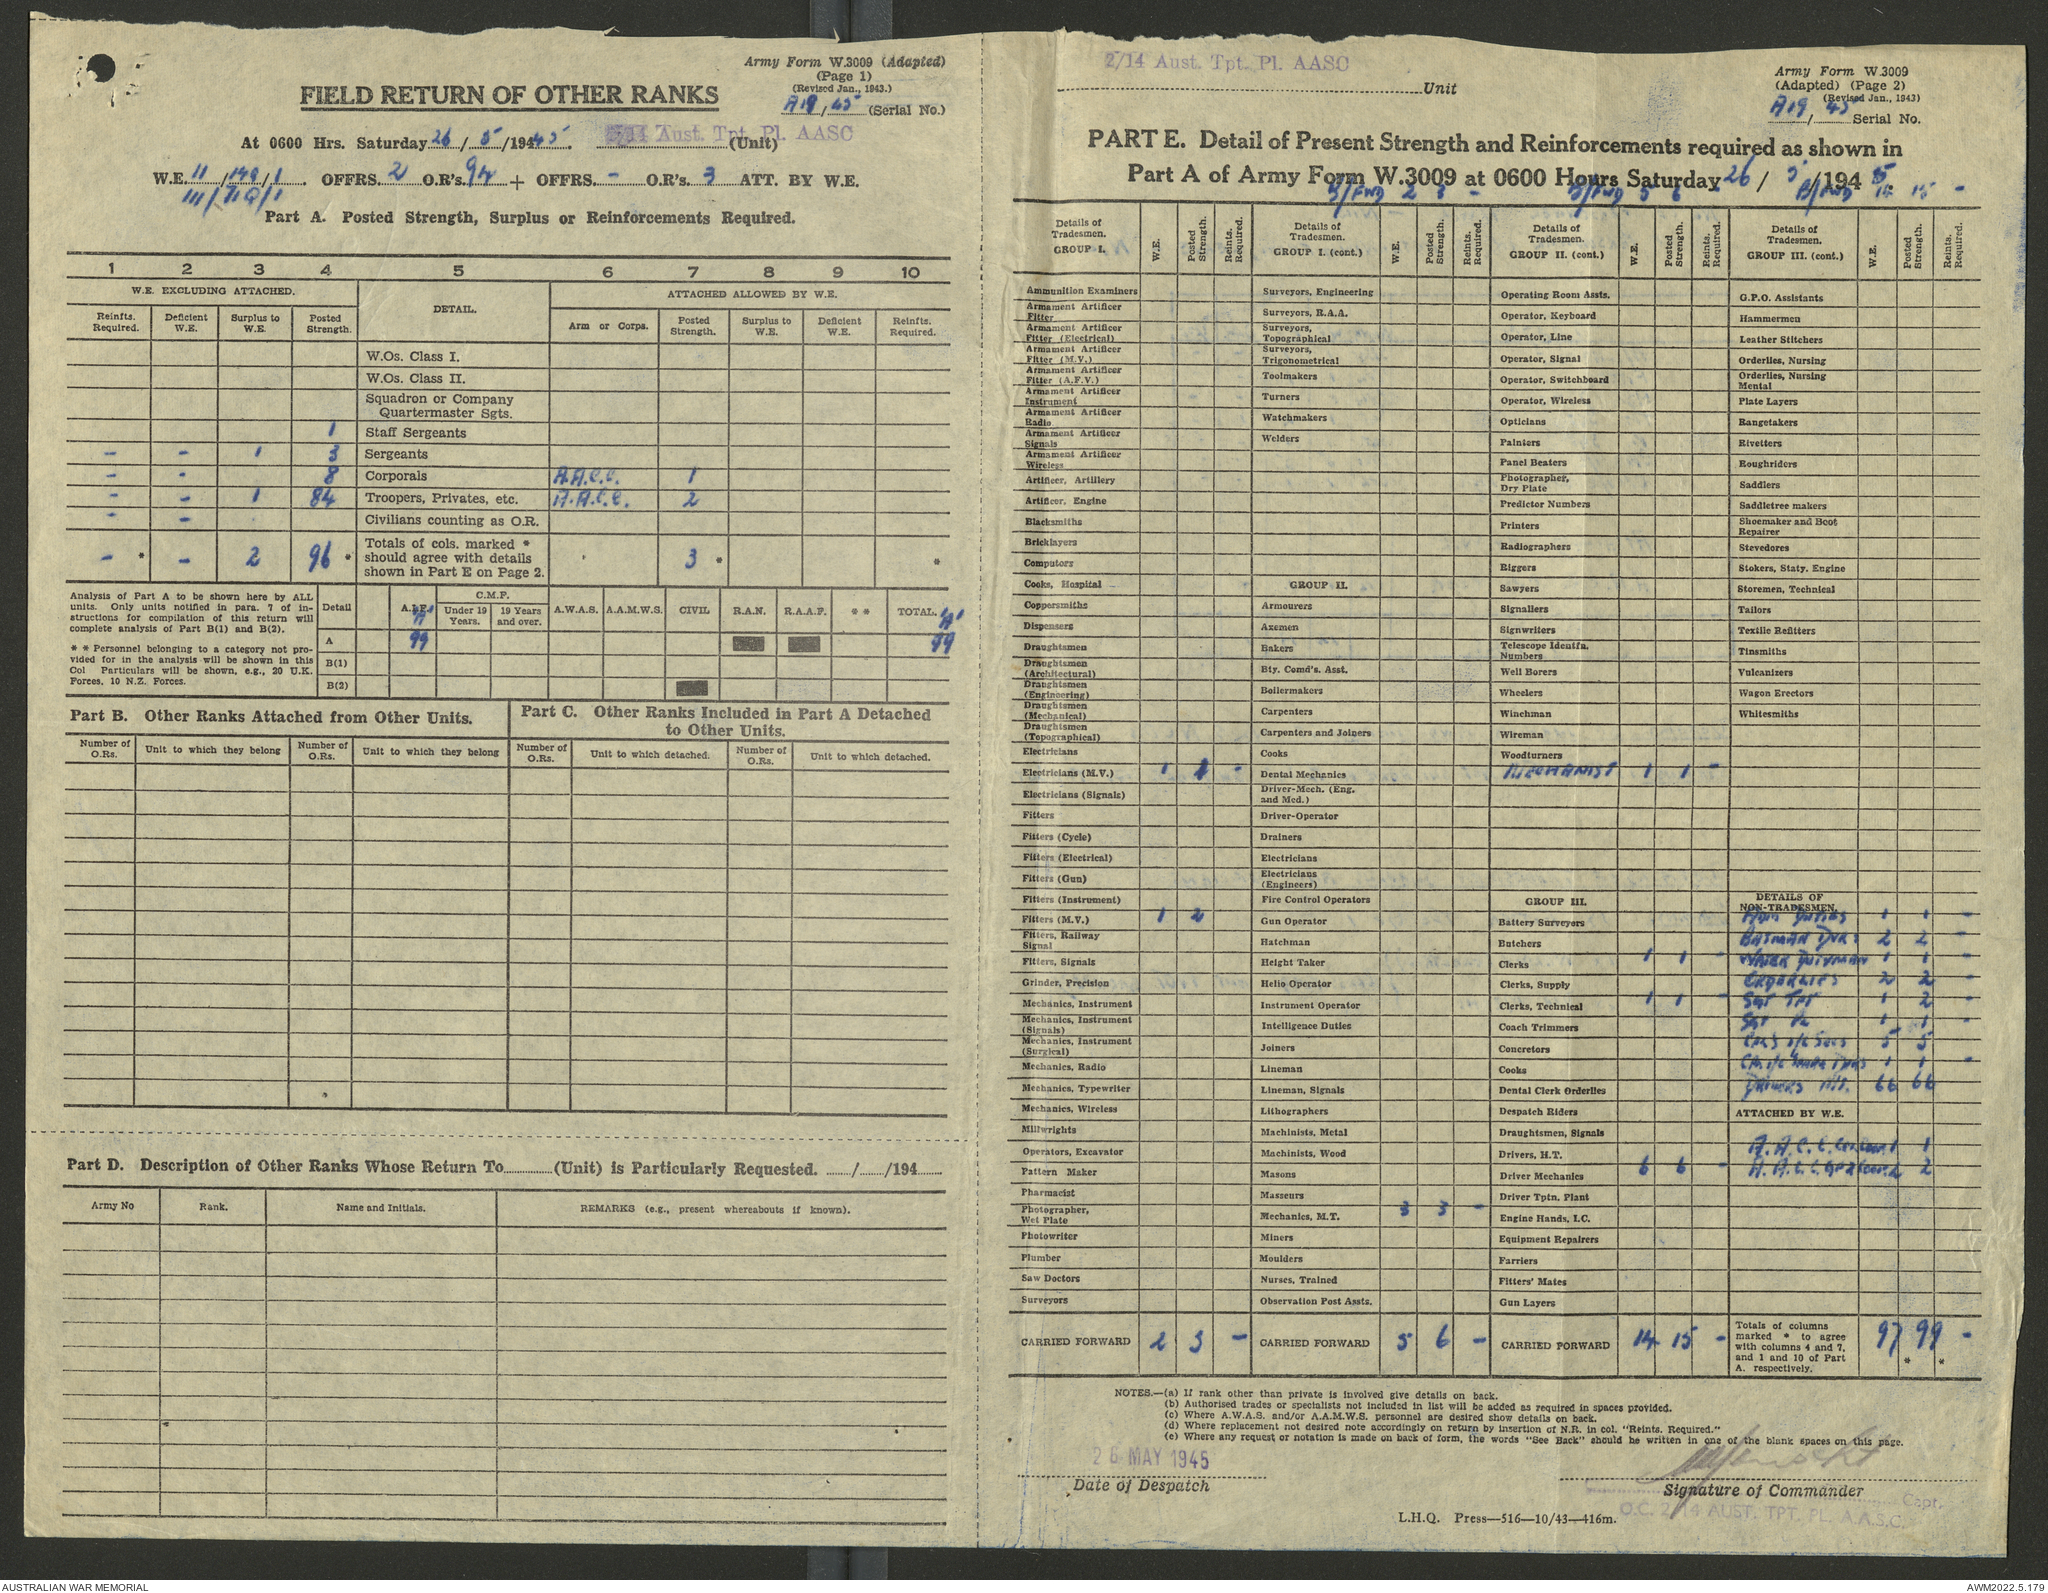 Army Form W.3009 (Adapted)
(Page 1)
(Revised Jan., 1943.)
FIELD RETURN OF OTHER RANKS
A19/45 (Serial No.)
At 0600 Hrs. Saturday 26/5/1945. 2/14 Aust. Tpt. Pl. AASC (Unit)
W.E. 11/149/1. OFFRS. 2 O.R's. 94 + OFFRS. - O.R's. 3 ATT. BY W.E.
Part A. Posted Strength, Surplus or Reinforcements Required.
1 2 3 4 5 6 7 8 9 10
W.E. EXCLUDING ATTACHED. DETAIL. ATTACHED ALLOWED BY W.E.
Reinfts. Required. Deficient W.E. Surplus to W.E. Posted Strength. Arm or Corps. Posted Strength. Surplus to W.E. Deficient W.E. Reinfts. Required.
W.Os. Class I.
W.Os. Class II.
Squadron or Company Quartermaster Sgts.
1 Staff Sergeants
- - 1 3 Sergeants
- - 8 Corporals A.A.C.C. 1
- - 1 84 Troopers, Privates, etc. A.A.C.C. 2
- - Civilians counting as O.R.
- * - 2 96 * Totals of cols. marked * should agree with details shown in Part E on Page 2. 3 * *
Analysis of Part A to be shown here by ALL units. Only units notified in para. 7 of instructions for compilation of this return will complete analysis of Part B(1) and B(2).
* * Personnel belonging to a category not provided for in the analysis will be shown in this Col Particulars will be shown, e.g., 20 U.K. Forces, 10 N.Z. Forces.
Detail A.I.F. C.M.F. Under 19 Years. 19 Years and over. A.W.A.S. A.A.M.W.S. CIVIL R.A.N. R.A.A.F. * * TOTAL.
A 99 99
B(1)
B(2)
Part B. Other Ranks Attached from Other Units.
Part C. Other Ranks Included in Part A Detached to Other Units.
Number of O.Rs. Unit to which they belong Number of O.Rs. Unit to which they belong Number of O.Rs. Unit to which detached. Number of O.Rs. Unit to which detached.
Part D. Description of Other Ranks Whose Return To (Unit) is Particularly Requested. / /194
Army No Rank. Name and Initials. REMARKS (e.g., present whereabouts if known).
2/14 Aust. Tpt. Pl. AASC Unit
Army Form W.3009
(Adapted) (Page 2)
(Revised Jan., 1943)
A19/45 Serial No.
PART E. Detail of Present Strength and Reinforcements required as shown in
Part A of Army Form W.3009 at 0600 Hours Saturday 26/5/1945
B/FWD 2 3 - B/FWD 5 6 B/FWD 14 15 -
Details of Tradesmen. GROUP I. W.E. Posted Strength. Reints. Required.
Ammunition Examiners
Armament Artificer Fitter
Armament Artificer Fitter (Electrical)
Armament Artificer Fitter (M.V.)
Armament Artificer Fitter (A.F.V.)
Armament Artificer Instrument
Armament Artificer Radio
Armament Artificer Signals
Armament Artificer Wireless
Artificer, Artillery
Artificer, Engine
Blacksmiths
Bricklayers
Computors
Cooks, Hospital
Coppersmiths
Dispensers
Draughtsmen
Draughtsmen (Architectural)
Draughtsmen (Engineering)
Draughtsmen (Mechanical)
Draughtsmen (Topographical)
Electricians
Electricians (M.V.) 1 1 -
Electricians (Signals)
Fitters
Fitters (Cycle)
Fitters (Electrical)
Fitters (Gun)
Fitters (Instrument)
Fitters (M.V.) 1 2
Fitters, Railway Signal
Fitters, Signals
Grinder, Precision
Mechanics, Instrument
Mechanics, Instrument (Signals)
Mechanics, Instrument (Surgical)
Mechanics, Radio
Mechanics, Typewriter
Mechanics, Wireless
Millwrights
Operators, Excavator
Pattern Maker
Pharmacist
Photographer, Wet Plate
Photowriter
Plumber
Saw Doctors
Surveyors
CARRIED FORWARD 2 3 -
Details of Tradesmen. GROUP I. (cont.) W.E. Posted Strength. Reints. Required.
Surveyors, Engineering
Surveyors, R.A.A.
Surveyors, Topographical
Surveyors, Trigonometrical
Toolmakers
Turners
Watchmakers
Welders
GROUP II.
Armourers
Axemen
Bakers
Bty. Comd's. Asst.
Boilermakers
Carpenters
Carpenters and Joiners
Cooks
Dental Mechanics
Driver-Mech. (Eng. and Med.)
Driver-Operator
Drainers
Electricians
Electricians (Engineers)
Fire Control Operators
Gun Operator
Hatchman
Height Taker
Helio Operator
Instrument Operator
Intelligence Duties
Joiners
Lineman
Lineman, Signals
Lithographers
Machinists, Metal
Machinists, Wood
Masons
Masseurs
Mechanics, M.T. 3 3 -
Miners
Moulders
Nurses, Trained
Observation Post Assts.
CARRIED FORWARD 5 6 -
Details of Tradesmen. GROUP II. (cont) W.E. Posted Strength. Reints. Required.
Operating Room Assts.
Operator, Keyboard
Operator, Line
Operator, Signal
Operator, Switchboard
Operator, Wireless
Opticians
Painters
Panel Beaters
Photographer, Dry Plate
Predictor Numbers
Printers
Radiographers
Riggers
Sawyers
Signallers
Signwriters
Telescope Identfn. Numbers
Well Borers
Wheelers
Winchman
Wireman
Woodturners
MECHANIST 1 1 -
GROUP III.
Battery Surveyors
Butchers
Clerks 1 1 -
Clerks, Supply
Clerks, Technical 1 1 -
Coach Trimmers
Concretors
Cooks
Dental Clerk Orderlies
Despatch Riders
Draughtsmen, Signals
Drivers, H.T.
Driver Mechanics 6 6 -
Driver Tptn. Plant
Engine Hands, I.C.
Equipment Repairers
Farriers
Fitters' Mates
Gun Layers
CARRIED FORWARD 14 15 -
Details of Tradesmen. GROUP III. (cont.) W.E. Posted Strength. Reints. Required.
G.P.O. Assistants
Hammermen
Leather Stitchers
Orderlies, Nursing
Orderlies, Nursing Mental
Plate Layers
Rangetakers
Rivetters
Roughriders
Saddlers
Saddletree makers
Shoemaker and Boot Repairer
Stevedores
Stokers, Staty. Engine
Storemen, Technical
Tailors
Textile Refitters
Tinsmiths
Vulcanizers
Wagon Erectors
Whitesmiths
DETAILS OF NON-TRADESMEN.
Duties 1 1 -
BATMAN DVRS 2 2 -
WATER DUTYMAN 1 1 -
ORDERLIES 2 2 -
SGT TPT 1 2
SGT PL 1 1 -
CPLS I/C SECS 5 5
1 1 -
DRIVERS M.T. 66 66
ATTACHED BY W.E.
A.A.C.C. 1 1
A.A.C.C. 2 2
Totals of columns marked * to agree with columns 4 and 7, and 1 and 10 of Part A. respectively. 97 99 * - *
NOTES.—(a) If rank other than private is involved give details on back.
(b) Authorised trades or specialists not included in list will be added as required in spaces provided.
(c) Where A.W.A.S. and/or A.A.M.W.S. personnel are desired show details on back.
(d) Where replacement not desired note accordingly on return by insertion of N.R. in col. "Reints. Required."
(e) Where any request or notation is made on back of form, the words "See Back" should be written in one of the blank spaces on this page.
26 MAY 1945
Date of Despatch
Signature of Commander
Capt.
O.C. 2/14 AUST. TPT. PL. A.A.S.C.
L.H.Q. Press—516—10/43—416m.
AUSTRALIAN WAR MEMORIAL
AWM2022.5.179